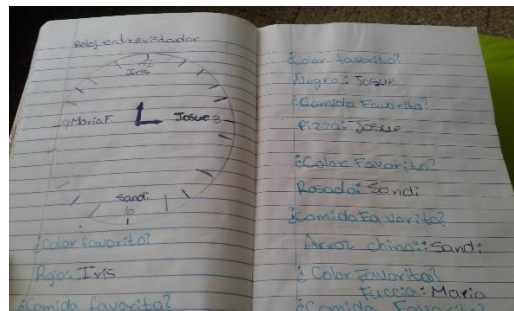 Reloj entrevistador
12
Iris
9 Maria F
Josue 3
Sandi
6
¿Color favorito?
Rojo: Iris
¿Comida favorita?
¿Color favorito?
Negro: Josue
¿Comida Favorita?
Pizza: Josue
¿Color Favorito?
Rosado: Sandi
¿Comida Favorita?
Arroz chino: Sandi
¿Color Favorito?
Fuccia: Maria
¿Comida Favorita?